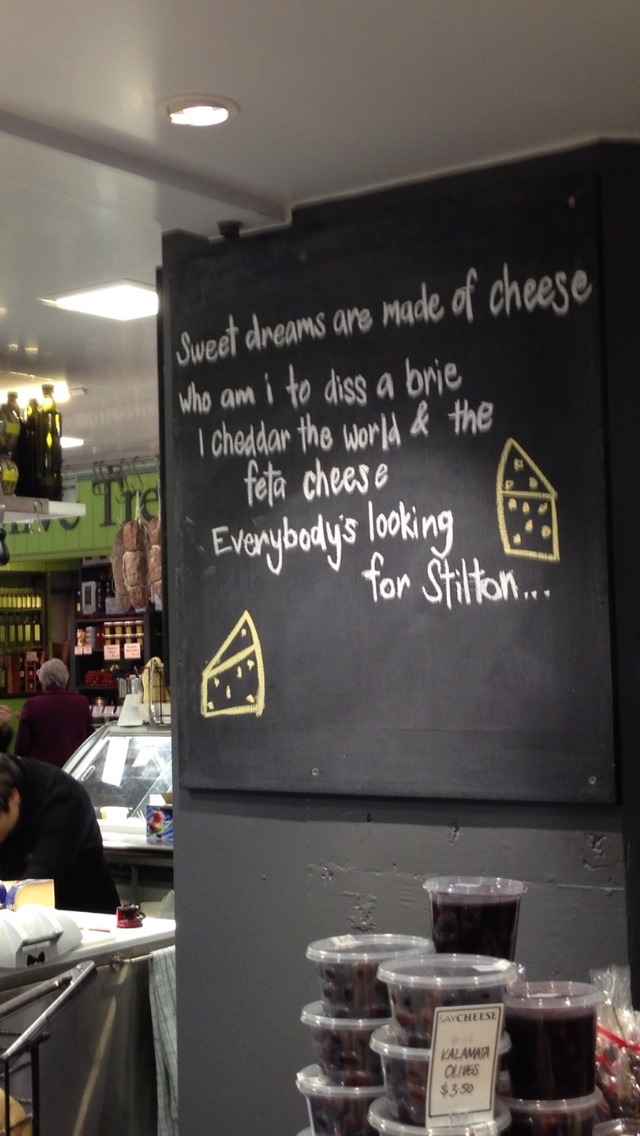 Sweet dreams are made of cheese
who am i to diss a brie
I cheddar the world & the
feta cheese
Everybody's looking
for Stilton...
Tre
SAYCHEESE
KALAMATA
OLIVES
$3.50